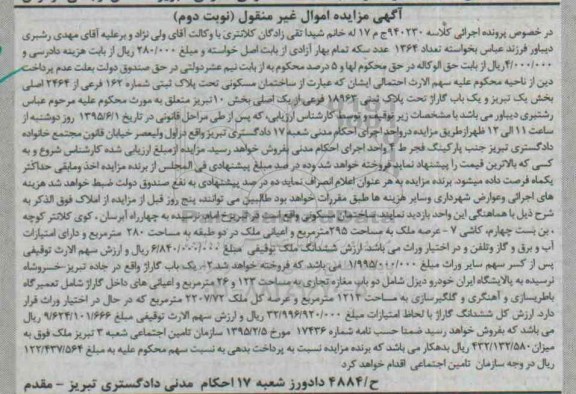 آگهی مزایده اموال غیر منقول (نوبت دوم)
در خصوص پرونده اجرائی کلاسه ۹۴۰۲۳۰ج م ۱۷ له خانم شیدا تقی زادگان کلانتری با وکالت آقای ولی نژاد و برعلیه آقای مهدی رشبری
دیباور فرزند عباس بخواسته تعداد ۱۳۶۴ عدد سکه تمام بهار آزادی از بابت اصل خواسته و مبلغ ۲۸۰/۰۰۰ ریال از بابت هزینه دادرسی و
۴/۰۰۰/۰۰۰ریال از بابت حق الوکاله در حق محکوم لها و ۵ درصد محکوم به از بابت نیم عشردولتی در حق صندوق دولت بعلت عدم پرداخت
دین از ناحیه محکوم علیه سهم الارث احتمالی ایشان که عبارت از ساختمان مسکونی تحت پلاک ثبتی شماره ۱۶۲ فرعی از ۲۴۶۴ اصلی
بخش یک تبریز و یک باب گاراژ تحت پلاک ثبتی ۱۸۹۶۳ فرعی از یک اصلی بخش ۱۰ تبریز متعلق به مورث محکوم علیه مرحوم عباس
رشتبری دیباور می باشد با مشخصات زیر توقیف و کارشناس ارزیابی، که پس از طی مراحل قانونی در تاریخ ۱۳۹۵/۶/۱ روز دوشنبه از
ساعت ۱۱ الی ۱۲ ظهرازطریق مزایده درواحد اجرای احکام مدنی شعبه ۱۷ دادگستری تبریز واقع دراول ولیعصر خیابان قانون مجتمع خانواده
دادگستری تبریز جنب پارکینگ فجر ط ۴ واحد اجرای احکام مدنی بفروش خواهد رسید. مزایده ازمبلغ ارزیابی شده کارشناس شروع و به
کسی که بالاترین قیمت را پیشنهاد نماید فروخته خواهد شد ده در صد مبلغ پیشنهادی فی المجلس از برنده مزایده اخذ ومابقی حداکثر
یکماه فرصت داده میشود. برنده مزایده به هر عنوان اعلام انصراف نماید ده در صد پیشنهادی به نفع صندوق دولت ضبط خواهد شد هزینه
های اجرائی وعوارض شهرداری وسایر هزینه ها طبق مقررات خواهد بود طالبین می توانند، پنج روز قبل از مزایده از املاک فوق الذکر به
شرح ذیل با هماهنگی این واحد بازدید نمایند. ساختمان مسکونی واقع است در تبریزخ امام نرسیده به چهارراه آبرسان ، کوی کلانتر کوچه
، بن بست چهارم، کاشی ۷ - عرصه ملک به مساحت ۲۹۵مترمربع و اعیانی ملک در دو طبقه به مساحت ۲۸۰ مترمربع و دارای امتیازات
آب و برق و گاز وتلفن و در اختیار وراث می باشد. ارزش ششدانگ ملک توقیفی مبلغ ۶/۸۴۰/۰۰۰/۰۰۰ ریال و ارزش سهم الارث توقیفی
پس از کسر سهم سایر وراث مبلغ ۱/۹۹۵/۰۰۰/۰۰۰ می باشد که فروخته خواهد شد.۲- یک باب گاراژ واقع در جاده تبریز-خسروشاه
نرسیده به پالایشگاه ایران خودرو دیزل شامل دو باب مغازه تجاری به مساحت ۱۲۳ و ۲۶ مترمربع و اعیانی های داخل گاراژ شامل تعمیرگاه
باطریسازی و آهنگری و گلگیرسازی به مساحت ۱۲۱۳ مترمربع و عرصه کل ملک ۲۲۰۷/۷۲ مترمربع که در حال در اختیار وراث قرار
دارد. ارزش کل ششدانگ گاراژ با لحاظ امتیازات مبلغ ۳۲/۹۹۶/۹۲۰/۰۰۰ ریال و ارزش سهم الارث توقیفی مبلغ ۹/۶۲۴/۱۰۱/۶۶۶ ریال
می باشد که بفروش خواهد رسید ضمنا حسب نامه شماره ۱۷۴۳۶ مورخ ۱۳۹۵/۲/۵ سازمان تامین اجتماعی شعبه ۳ تبریز ملک فوق به
میزان ۴۳۲/۱۳۲/۵۸۰ ریال بدهکار می باشد که برنده مزایده نسبت به پرداخت بدهی به نسبت سهم محکوم علیه به مبلغ ۱۲۲/۴۳۷/۵۶۴
ریال در وجه سازمان تامین اجتماعی اقدام خواهد کرد
ح/۴۸۸۴ دادورز شعبه ۱۷ احکام مدنی دادگستری تبریز - مقدم